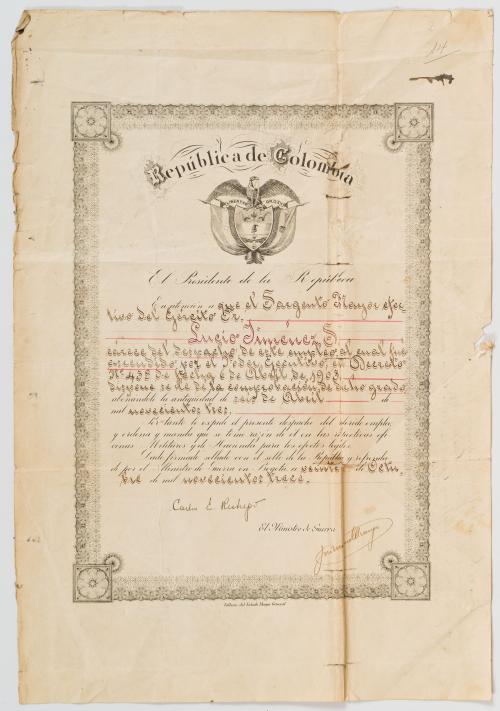 14
República de Colombia
El Presidente de la República
En atención a que el Sargento Mayor efec-
tivo del Ejército Sr.
Lucio Jiménez S.
carece del despacho de este empleo al cual fue
ascendido por el Poder Ejecutivo en Decreto
Nº 457 de fecha 6 de Abril de 1903
dispone se le dé la comprobación de dicho grado
abonándole la antigüedad de seis de Abril de
mil novecientos tres.
Por tanto le expide el presente despacho del dicho empleo
y ordena y manda que se tome razón de él en las respectivas ofi-
cinas Militares y de Hacienda para los efectos legales.
Dado firmado sellado con el sello de la República y refrendado
por el Ministro de Guerra en Bogotá a veinte de Octu-
bre de mil novecientos trece.
Carlos E. Restrepo
El Ministro de Guerra
Talleres del Estado Mayor General